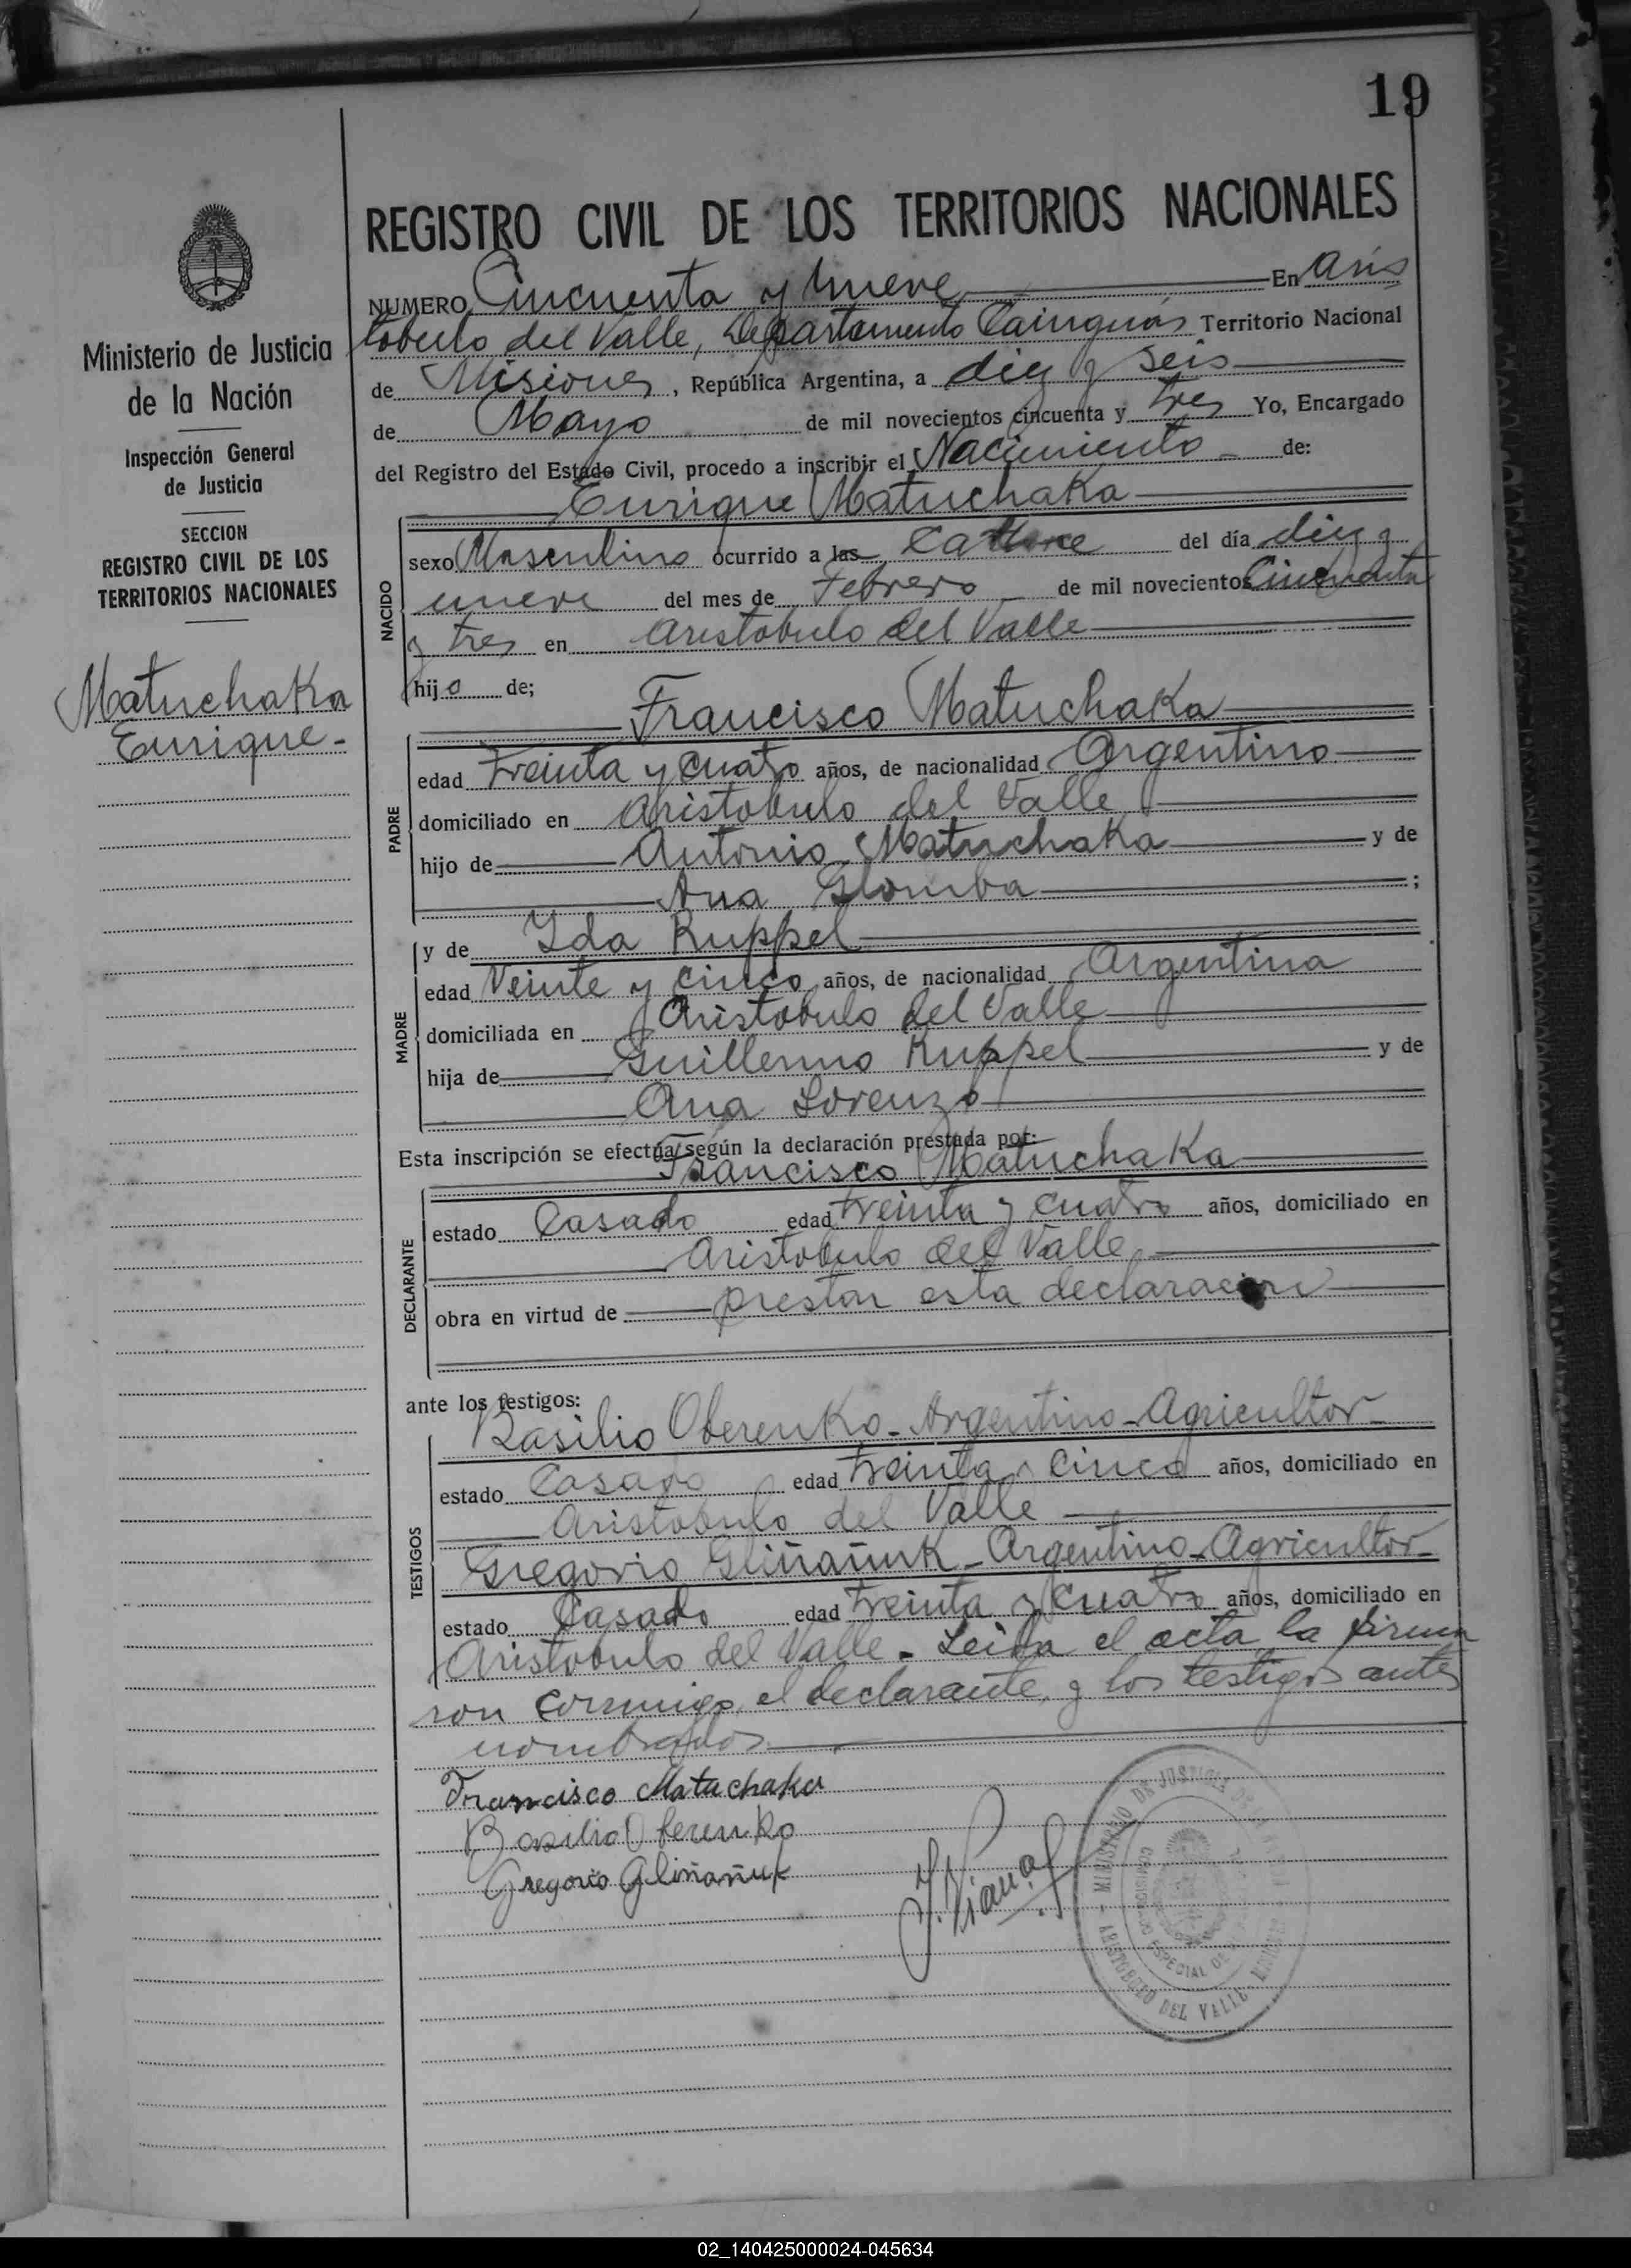 19
REGISTRO CIVIL DE LOS TERRITORIOS NACIONALES
Ministerio de Justicia
de la Nación
Inspección General
de Justicia
SECCION
REGISTRO CIVIL DE LOS
TERRITORIOS NACIONALES
Matuchaka
Enrique.
NUMERO Cincuenta y nueve En Aris
tobulo del Valle, Departamento Cainguás Territorio Nacional
de Misiones, República Argentina, a diez y seis
de Mayo de mil novecientos cincuenta y tres Yo, Encargado
del Registro del Estado Civil, procedo a inscribir el Nacimiento de:
Enrique Matuchaka
NACIDO
sexo Masculino ocurrido a las Catorce del día diez y
nueve del mes de Febrero de mil novecientos Cincuenta
y tres en Aristobulo del Valle
hijo de;
Francisco Matuchaka
PADRE
edad Treinta y cuatro años, de nacionalidad Argentino
domiciliado en Aristobulo del Valle
hijo de Antonio Matuchaka y de
Ana Glomba ;
MADRE
y de Ida Ruppel
edad Veinte y cinco años, de nacionalidad Argentina
domiciliada en Aristobulo del Valle
hija de Guillermo Ruppel y de
Ana Lorenzo
Esta inscripción se efectúa según la declaración prestada por:
Francisco Matuchaka
DECLARANTE
estado Casado edad treinta y cuatro años, domiciliado en
Aristobulo del Valle
obra en virtud de prestar esta declaracion
ante los testigos:
Basilio Oberenko - Argentino - Agricultor -
TESTIGOS
estado Casado edad treinta y cinco años, domiciliado en
Aristobulo del Valle
Gregorio Gliñañuk - Argentino - Agricultor -
estado Casado edad treinta y cuatro años, domiciliado en
Aristobulo del Valle - Leida el acta la firma
ron conmigo, el declarante, y los testigos antes
nombrados
Francisco Matuchaka
Basilio Oberenko
Gregorio Gliñañuk
MINISTERIO DE JUSTICIA DE
ESPECIAL DE
ARISTOBULO DEL VALLE
02_140425000024-045634